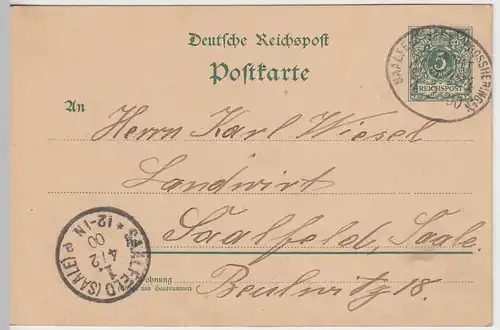 Deutsche Reichspost
Postkarte
5
REICHSPOST
SAALFE GROSSHERINGEN
An
Herrn Karl Wiesel
Landwirt
Saalfeld, Saale.
Beulwitz 18.
Wohnung
(Straße und Hausnummer)
SAALFELD (SAALE)
4/2
00
* 12-1N